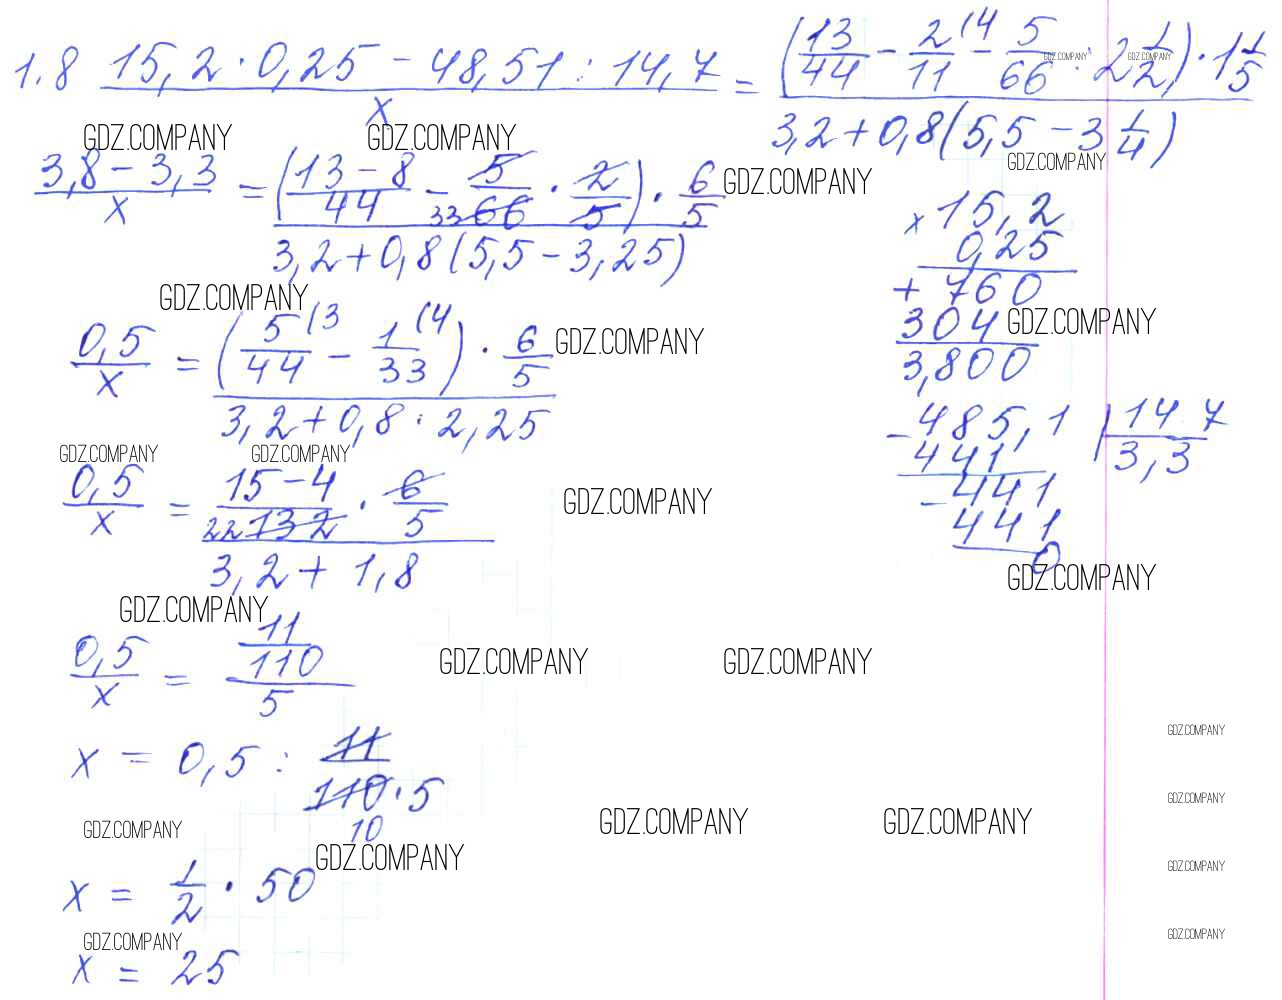 1.8 (15,2 · 0,25 − 48,51 : 14,7)/x = ((13/44 − 2/11 (4 − 5/66 : 2 1/2) · 1 1/5)/(3,2 + 0,8(5,5 − 3 1/4))
GDZ.COMPANY GDZ.COMPANY
GDZ.COMPANY GDZ.COMPANY GDZ.COMPANY
(3,8 − 3,3)/x = (((13 − 8)/44 − 5/66 33 · 2/5) · 6/5)/(3,2 + 0,8(5,5 − 3,25))
GDZ.COMPANY
× 15,2
0,25
+ 760
304
3,800
GDZ.COMPANY GDZ.COMPANY GDZ.COMPANY
0,5/x = ((5/44 (3 − 1/33 (4) · 6/5)/(3,2 + 0,8 · 2,25)
− 485,1 | 14 7
441 3,3
− 441
441
0
GDZ.COMPANY GDZ.COMPANY
0,5/x = ((15 − 4)/132 22 · 6/5)/(3,2 + 1,8)
GDZ.COMPANY
GDZ.COMPANY
GDZ.COMPANY
0,5/x = (11/110)/5
GDZ.COMPANY GDZ.COMPANY
GDZ.COMPANY
x = 0,5 : 11/(110 · 5) 10
GDZ.COMPANY
GDZ.COMPANY GDZ.COMPANY GDZ.COMPANY
GDZ.COMPANY GDZ.COMPANY
x = 1/2 · 50
GDZ.COMPANY GDZ.COMPANY
x = 25